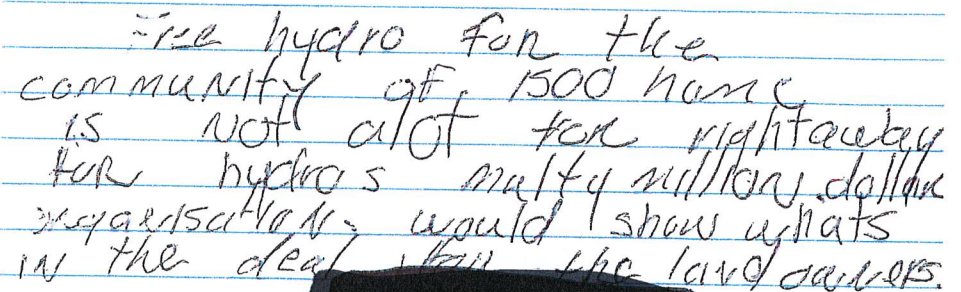 Free hydro for the
community of 1500 home
is not alot for rightaway
for hydro's multy million dollar
orgaensation, would show whats
in the deal for the land owners.